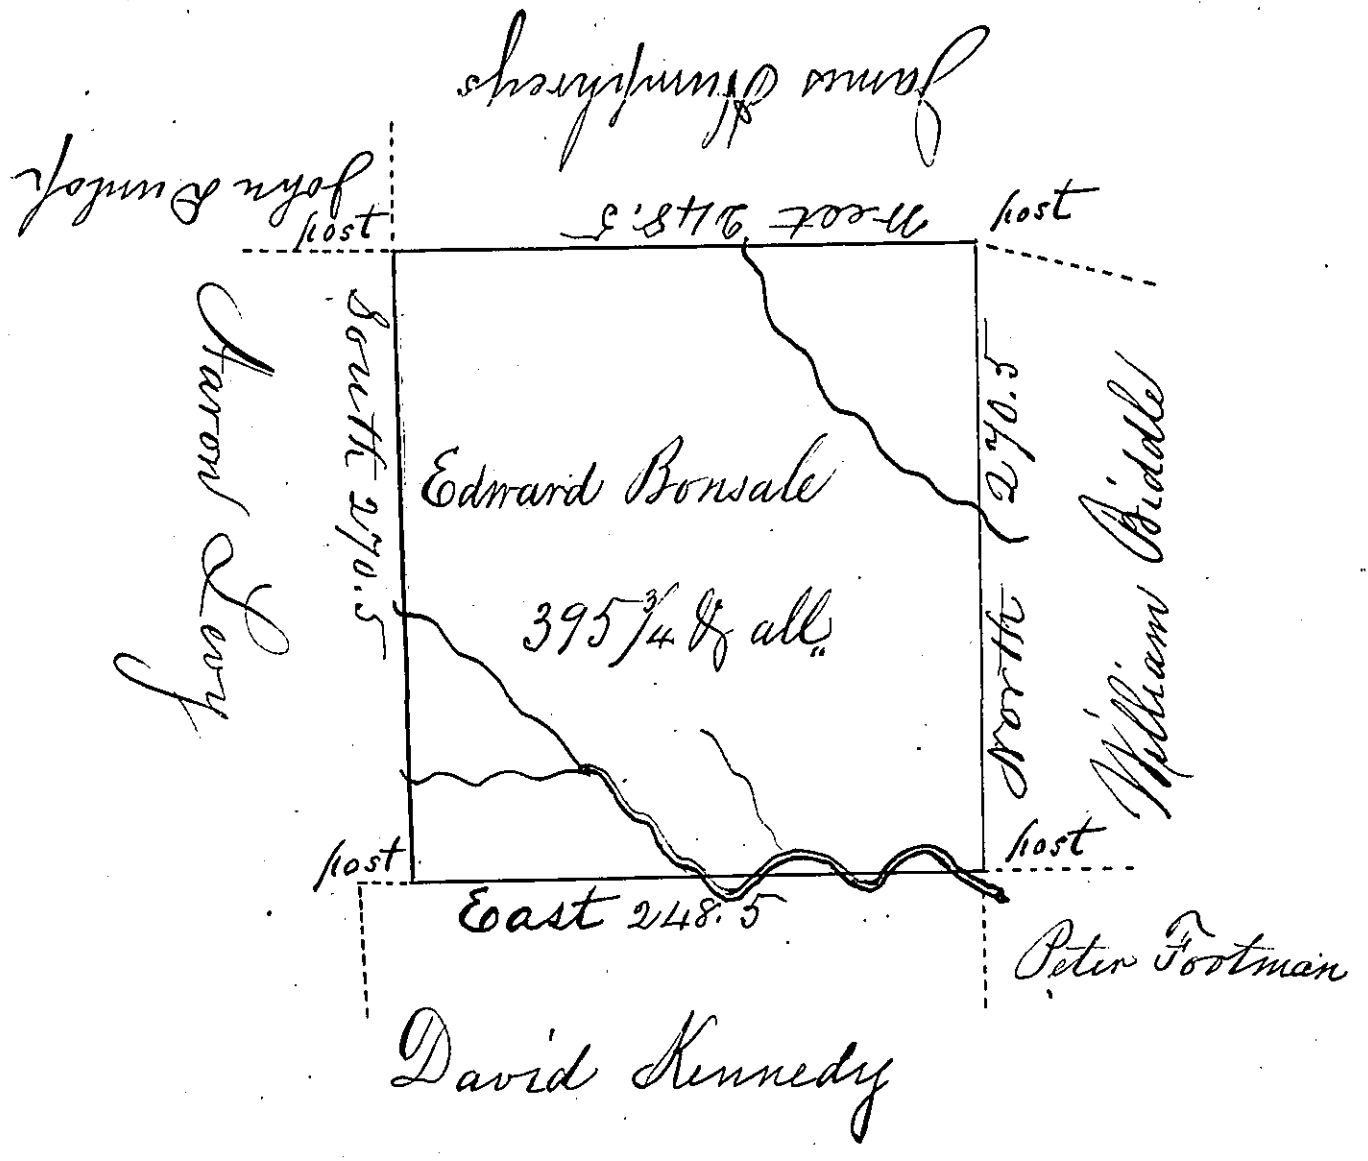 James Humphreys
John Dunlop
post
West 248.5
post
South 270.5
Aaron Levy
Edward Bonsale
395 3/4 & all.
North 270.5
William Biddle
post
East 248.5
post
Peter Footman
David Kennedy